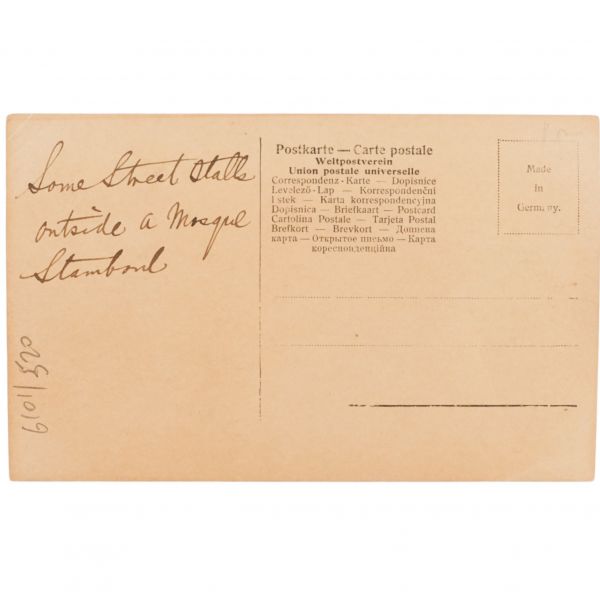 Some Street Stalls
outside a Mosque
Stamboul
Postkarte — Carte postale
Weltpostverein
Union postale universelle
Correspondenz-Karte — Dopisnice
Levelező-Lap — Korrespondenční
lístek — Karta korrespondencyjna
Dopisnica — Briefkaart — Postcard
Cartolina Postale — Tarjeta Postal
Brefkort — Brevkort — Дописна
карта — Открытое письмо — Карта
кореспонденційна
Made
in
Germany.